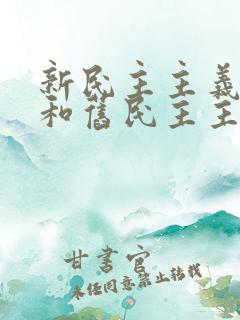 新民主主義
和舊民主主
甘書官
未经同意禁止转载